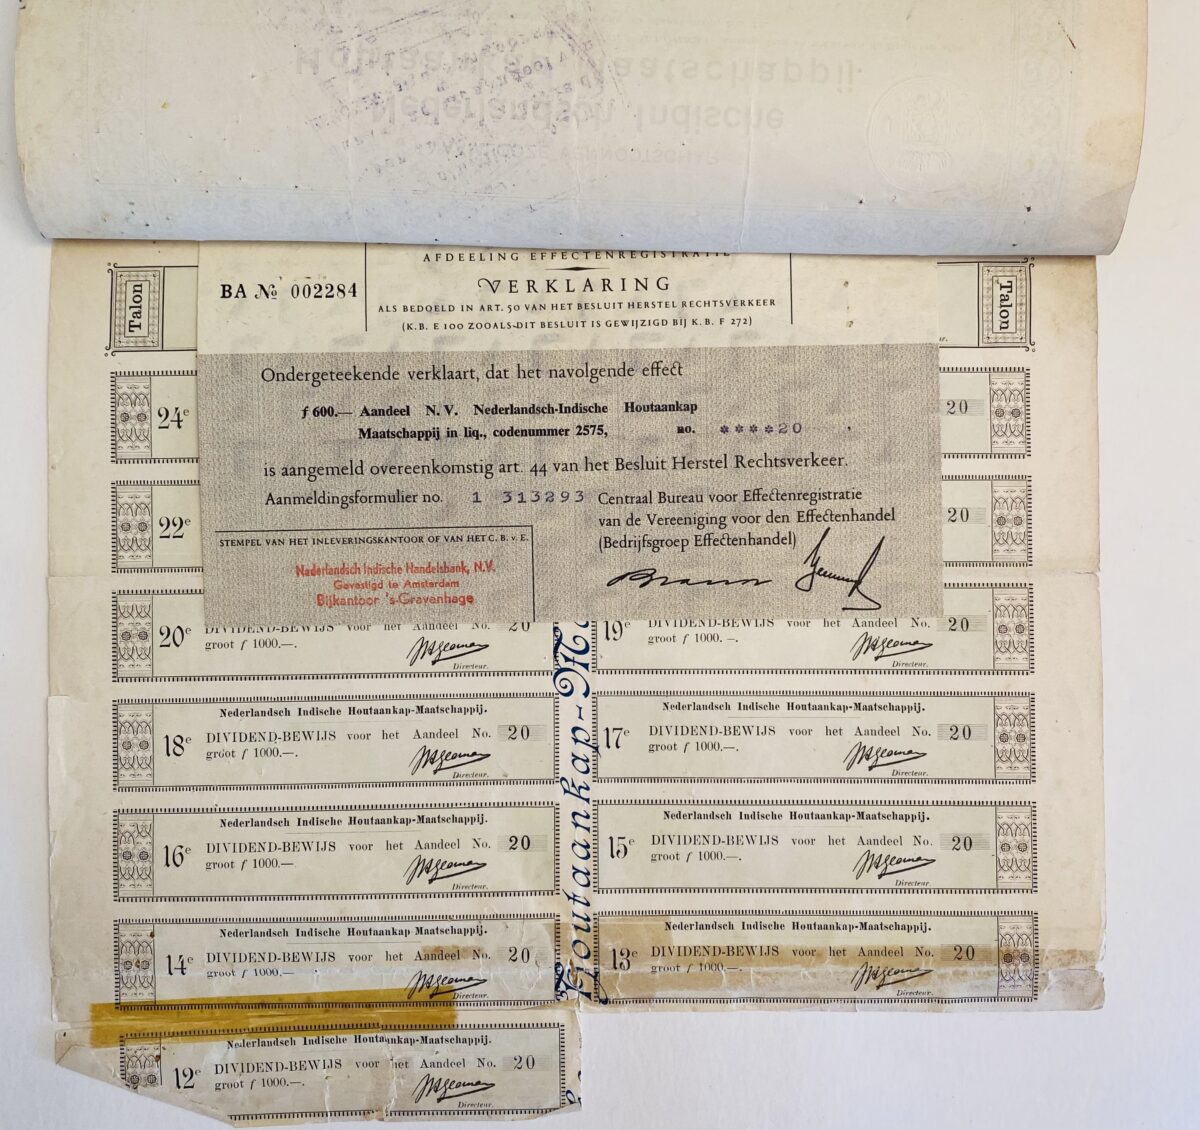 Houtaankap Maatschappij.
Nederlandsch Indische
NAAMLOOZE VENNOOTSCHAP
AFDEELING EFFECTENREGISTRATIE
BA № 002284
VERKLARING
ALS BEDOELD IN ART. 50 VAN HET BESLUIT HERSTEL RECHTSVERKEER
(K.B. E 100 ZOOALS DIT BESLUIT IS GEWIJZIGD BIJ K.B. F 272)
Talon
Talon
Ondergeteekende verklaart, dat het navolgende effect
f 600.— Aandeel N.V. Nederlandsch-Indische Houtaankap
Maatschappij in liq., codenummer 2575, no. ****20
is aangemeld overeenkomstig art. 44 van het Besluit Herstel Rechtsverkeer.
Aanmeldingsformulier no. 1 313293
Centraal Bureau voor Effectenregistratie
van de Vereeniging voor den Effectenhandel
(Bedrijfsgroep Effectenhandel)
STEMPEL VAN HET INLEVERINGSKANTOOR OF VAN HET C.B.v.E.
Nederlandsch Indische Handelsbank, N.V.
Gevestigd te Amsterdam
Bijkantoor 's-Gravenhage
24e
20
22e
20
20e
DIVIDEND-BEWIJS voor het Aandeel No. 20
groot f 1000.—.
Directeur.
19e
DIVIDEND-BEWIJS voor het Aandeel No. 20
groot f 1000.—.
Directeur.
Nederlandsch Indische Houtaankap-Maatschappij.
18e
DIVIDEND-BEWIJS voor het Aandeel No. 20
groot f 1000.—.
Directeur.
Nederlandsch Indische Houtaankap-Maatschappij.
17e
DIVIDEND-BEWIJS voor het Aandeel No. 20
groot f 1000.—.
Directeur.
Nederlandsch Indische Houtaankap-Maatschappij.
16e
DIVIDEND-BEWIJS voor het Aandeel No. 20
groot f 1000.—.
Directeur.
Nederlandsch Indische Houtaankap-Maatschappij.
15e
DIVIDEND-BEWIJS voor het Aandeel No. 20
groot f 1000.—.
Directeur.
Nederlandsch Indische Houtaankap-Maatschappij.
14e
DIVIDEND-BEWIJS voor het Aandeel No. 20
groot f 1000.—.
Directeur.
Nederlandsch Indische Houtaankap-Maatschappij.
13e
DIVIDEND-BEWIJS voor het Aandeel No. 20
groot f 1000.—.
Directeur.
Nederlandsch Indische Houtaankap-Maatschappij.
12e
DIVIDEND-BEWIJS voor het Aandeel No. 20
groot f 1000.—.
Directeur.
Houtaankap-M